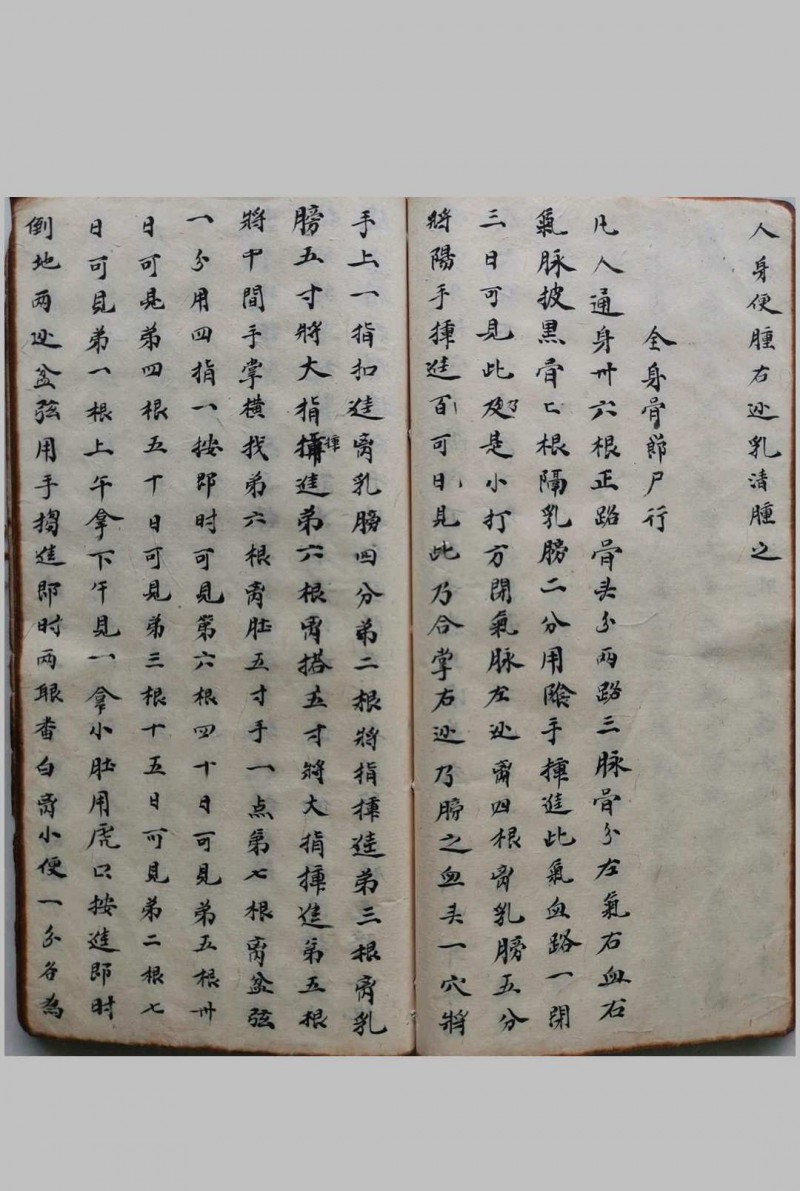 人身便腫右边乳清腫之
全身骨節尸行
凡人通身卅六根正路骨头分两路三脉骨分左氣右血右
氣脉披黑骨七根隔乳膀二分用陰手揷進此氣血路一閉
三日可見此乃是小打方閉氣脉左边离四根离乳膀五分
將陽手揷進百日可見此乃合掌右边乃膀之血头一穴將
手上一指扣進离乳膀四分弟二根將指揷進弟三根离乳
膀五寸將大指揷進弟六根离搭五寸將大指揷進弟五根
將中間手掌橫找弟六根离肚五寸手一点弟七根离盆弦
一分用四指一按即时可見第六根四十日可見弟五根卅
日可見弟四根五十日可見弟三根十五日可見弟二根七
日可見弟一根上午拿下午見一拿小肚用虎口按進即时
倒地两边盆弦用手搊進即时两眼番白离小便一分名為